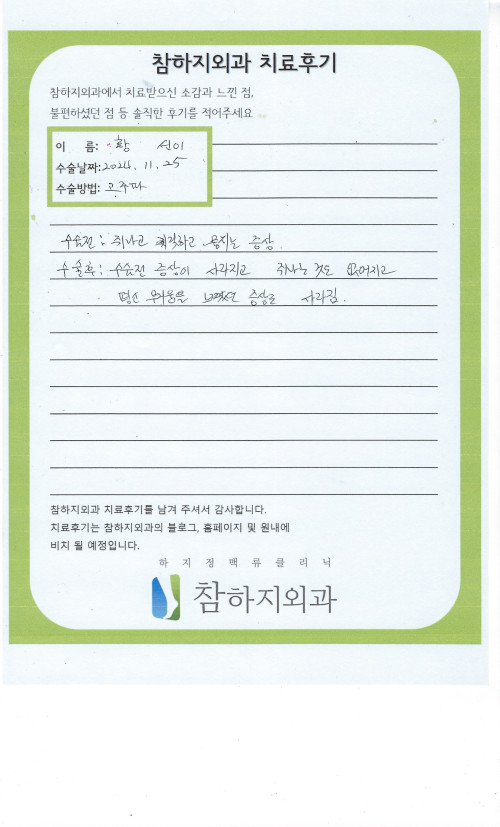 참하지외과 치료후기
참하지외과에서 치료받으신 소감과 느낀 점,
불편하셨던 점 등 솔직한 후기를 적어주세요
이 름: 황 선이
수술날짜:2024. 11. 25
수술방법: 고주파
수술전 : 쥐나고 찌릿하고 뭉치는 증상
수술후 : 수술전 증상이 사라지고 쥐나는 것도 없어지고
평신 무거움을 느꼈던 증상도 사라짐.
참하지외과 치료후기를 남겨 주셔서 감사합니다.
치료후기는 참하지외과의 블로그, 홈페이지 및 원내에
비치 될 예정입니다.
하지정맥류클리닉
참하지외과